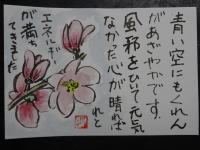 青い空にもくれん
があざやかです。
風邪をひいて元気
なかった心が晴れば
れと
エネルギー
が満ち
てきました